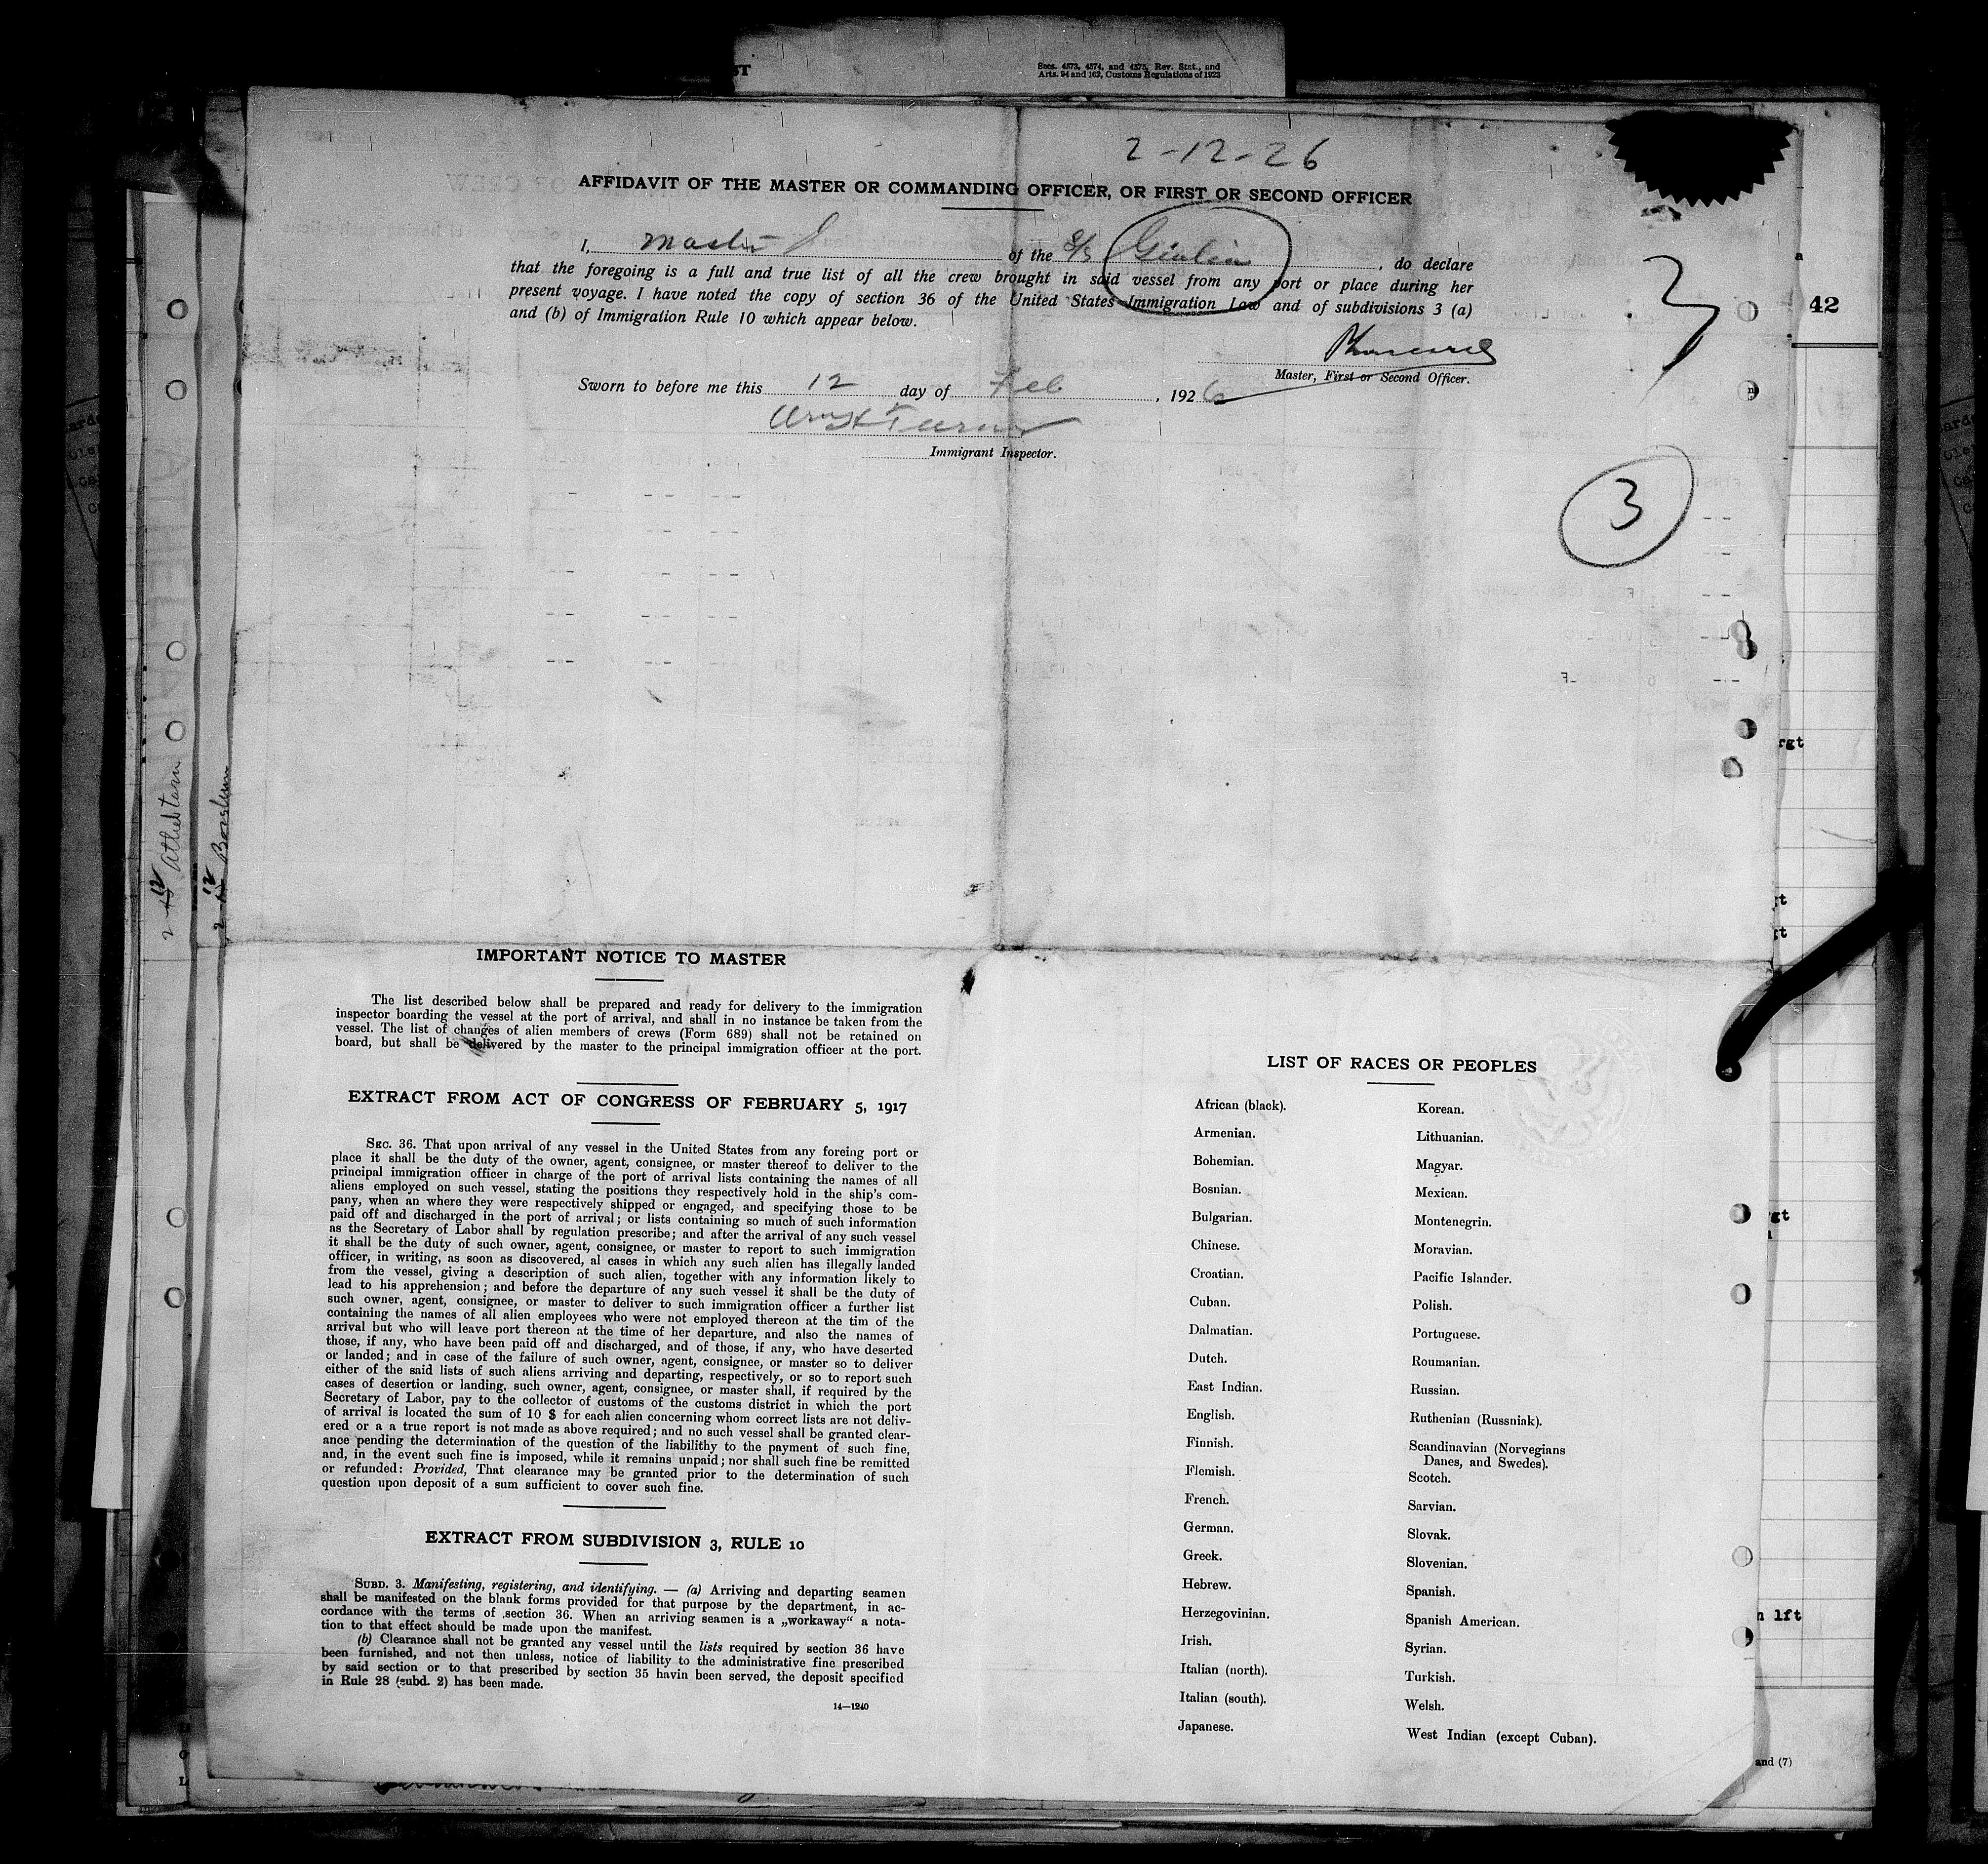 ST
Secs. 4573, 4574, and 4575, Rev. Stat., and
Arts. 94 and 162, Customs Regulations of 1923
2-12-26
AFFIDAVIT OF THE MASTER OR COMMANDING OFFICER, OR FIRST OR SECOND OFFICER
I, Master of the S/S Giulia, do declare
that the foregoing is a full and true list of all the crew brought in said vessel from any port or place during her
present voyage. I have noted the copy of section 36 of the United States Immigration Law and of subdivisions 3 (a)
and (b) of Immigration Rule 10 which appear below.
Master, First or Second Officer.
Sworn to before me this 12 day of Feb, 1926
Turner
Immigrant Inspector.
3
3
42
rgt
gt
gt
rgt
n lft
and (7)
ATHELTA
2-12 Atheltarn
2-12 Boreslum
IMPORTANT NOTICE TO MASTER
The list described below shall be prepared and ready for delivery to the immigration
inspector boarding the vessel at the port of arrival, and shall in no instance be taken from the
vessel. The list of changes of alien members of crews (Form 689) shall not be retained on
board, but shall be delivered by the master to the principal immigration officer at the port.
EXTRACT FROM ACT OF CONGRESS OF FEBRUARY 5, 1917
SEC. 36. That upon arrival of any vessel in the United States from any foreing port or
place it shall be the duty of the owner, agent, consignee, or master thereof to deliver to the
principal immigration officer in charge of the port of arrival lists containing the names of all
aliens employed on such vessel, stating the positions they respectively hold in the ship's com-
pany, when an where they were respectively shipped or engaged, and specifying those to be
paid off and discharged in the port of arrival; or lists containing so much of such information
as the Secretary of Labor shall by regulation prescribe; and after the arrival of any such vessel
it shall be the duty of such owner, agent, consignee, or master to report to such immigration
officer, in writing, as soon as discovered, al cases in which any such alien has illegally landed
from the vessel, giving a description of such alien, together with any information likely to
lead to his apprehension; and before the departure of any such vessel it shall be the duty of
such owner, agent, consignee, or master to deliver to such immigration officer a further list
containing the names of all alien employees who were not employed thereon at the tim of the
arrival but who will leave port thereon at the time of her departure, and also the names of
those, if any, who have been paid off and discharged, and of those, if any, who have deserted
or landed; and in case of the failure of such owner, agent, consignee, or master so to deliver
either of the said lists of such aliens arriving and departing, respectively, or so to report such
cases of desertion or landing, such owner, agent, consignee, or master shall, if required by the
Secretary of Labor, pay to the collector of customs of the customs district in which the port
of arrival is located the sum of 10 $ for each alien concerning whom correct lists are not deliv-
ered or a a true report is not made as above required; and no such vessel shall be granted clear-
ance pending the determination of the question of the liabilithy to the payment of such fine,
and, in the event such fine is imposed, while it remains unpaid; nor shall such fine be remitted
or refunded: Provided, That clearance may be granted prior to the determination of such
question upon deposit of a sum sufficient to cover such fine.
EXTRACT FROM SUBDIVISION 3, RULE 10
SUBD. 3. Manifesting, registering, and identifying. — (a) Arriving and departing seamen
shall be manifested on the blank forms provided for that purpose by the department, in ac-
cordance with the terms of section 36. When an arriving seamen is a „workaway“ a nota-
tion to that effect should be made upon the manifest.
(b) Clearance shall not be granted any vessel until the lists required by section 36 have
been furnished, and not then unless, notice of liability to the administrative fine prescribed
by said section or to that prescribed by section 35 havin been served, the deposit specified
in Rule 28 (subd. 2) has been made.
14—1240
LIST OF RACES OR PEOPLES
African (black).
Armenian.
Bohemian.
Bosnian.
Bulgarian.
Chinese.
Croatian.
Cuban.
Dalmatian.
Dutch.
East Indian.
English.
Finnish.
Flemish.
French.
German.
Greek.
Hebrew.
Herzegovinian.
Irish.
Italian (north).
Italian (south).
Japanese.
Korean.
Lithuanian.
Magyar.
Mexican.
Montenegrin.
Moravian.
Pacific Islander.
Polish.
Portuguese.
Roumanian.
Russian.
Ruthenian (Russniak).
Scandinavian (Norvegians
Danes, and Swedes).
Scotch.
Sarvian.
Slovak.
Slovenian.
Spanish.
Spanish American.
Syrian.
Turkish.
Welsh.
West Indian (except Cuban).